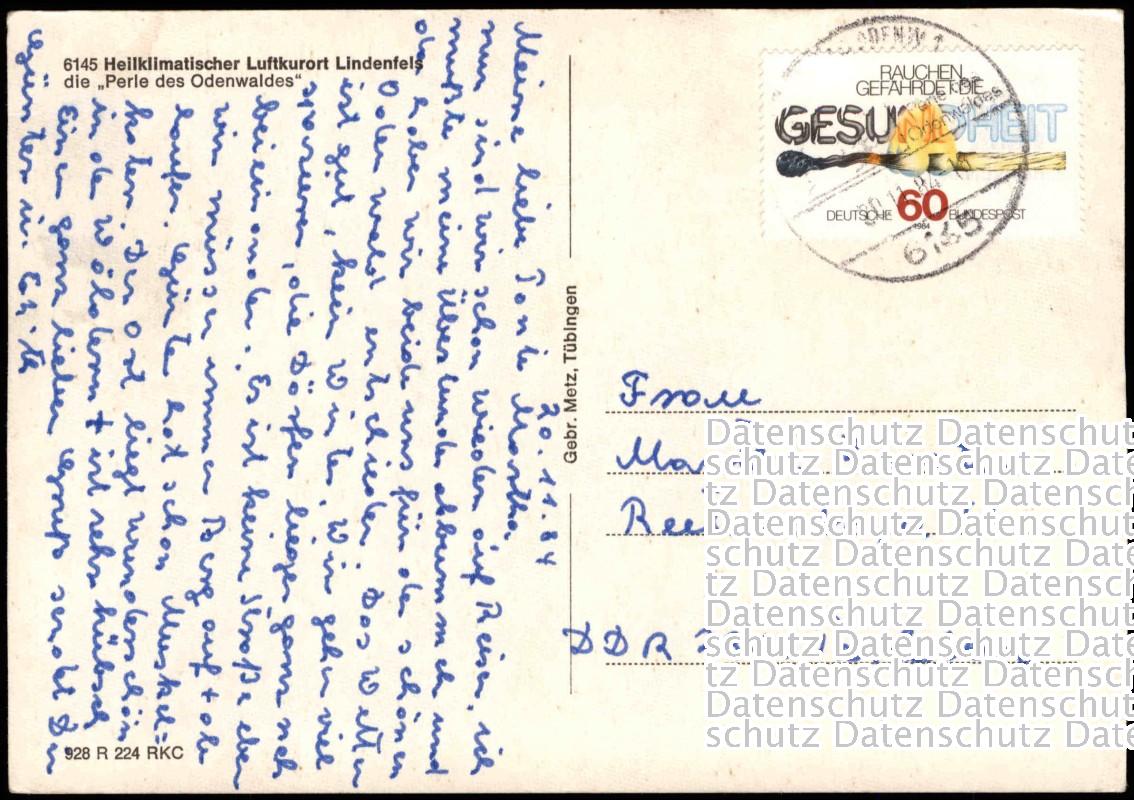 6145 Heilklimatischer Luftkurort Lindenfels
die „Perle des Odenwaldes"
20.11.84
Meine liebe Tante Martha,
nun sind wir schon wieder auf Reisen, ich
mußte meine Überstunden abbummeln und
da haben wir beide uns für den schönen
Odenwald entschieden. Das Wetter
ist gut, kein Winter. Wir gehen viel
spazieren, die Dörfer liegen ganz nah
beieinander. Es ist keine Straße eben
wir müssen immer Berg auf + ab
laufen. Günter hat schon Muskel=
kater. Der Ort liegt wunderschön
in den Wäldern + ist sehr hübsch
Einen ganz lieben Gruß sendet Dir
Günter u. Edith
928 R 224 RKC
Gebr. Metz, Tübingen
RAUCHEN
GEFÄHRDET DIE
GESUNDHEIT
DEUTSCHE 60 BUNDESPOST
1984
Perle des
Odenwaldes
20.11.84
6145
Frau
DDR
Datenschutz Datenschut
schutz Datenschutz Date
tz Datenschutz Datensch
Datenschutz Datenschut
schutz Datenschutz Date
tz Datenschutz Datensch
Datenschutz Datenschut
schutz Datenschutz Date
tz Datenschutz Datensch
Datenschutz Datenschut
schutz Datenschutz Date